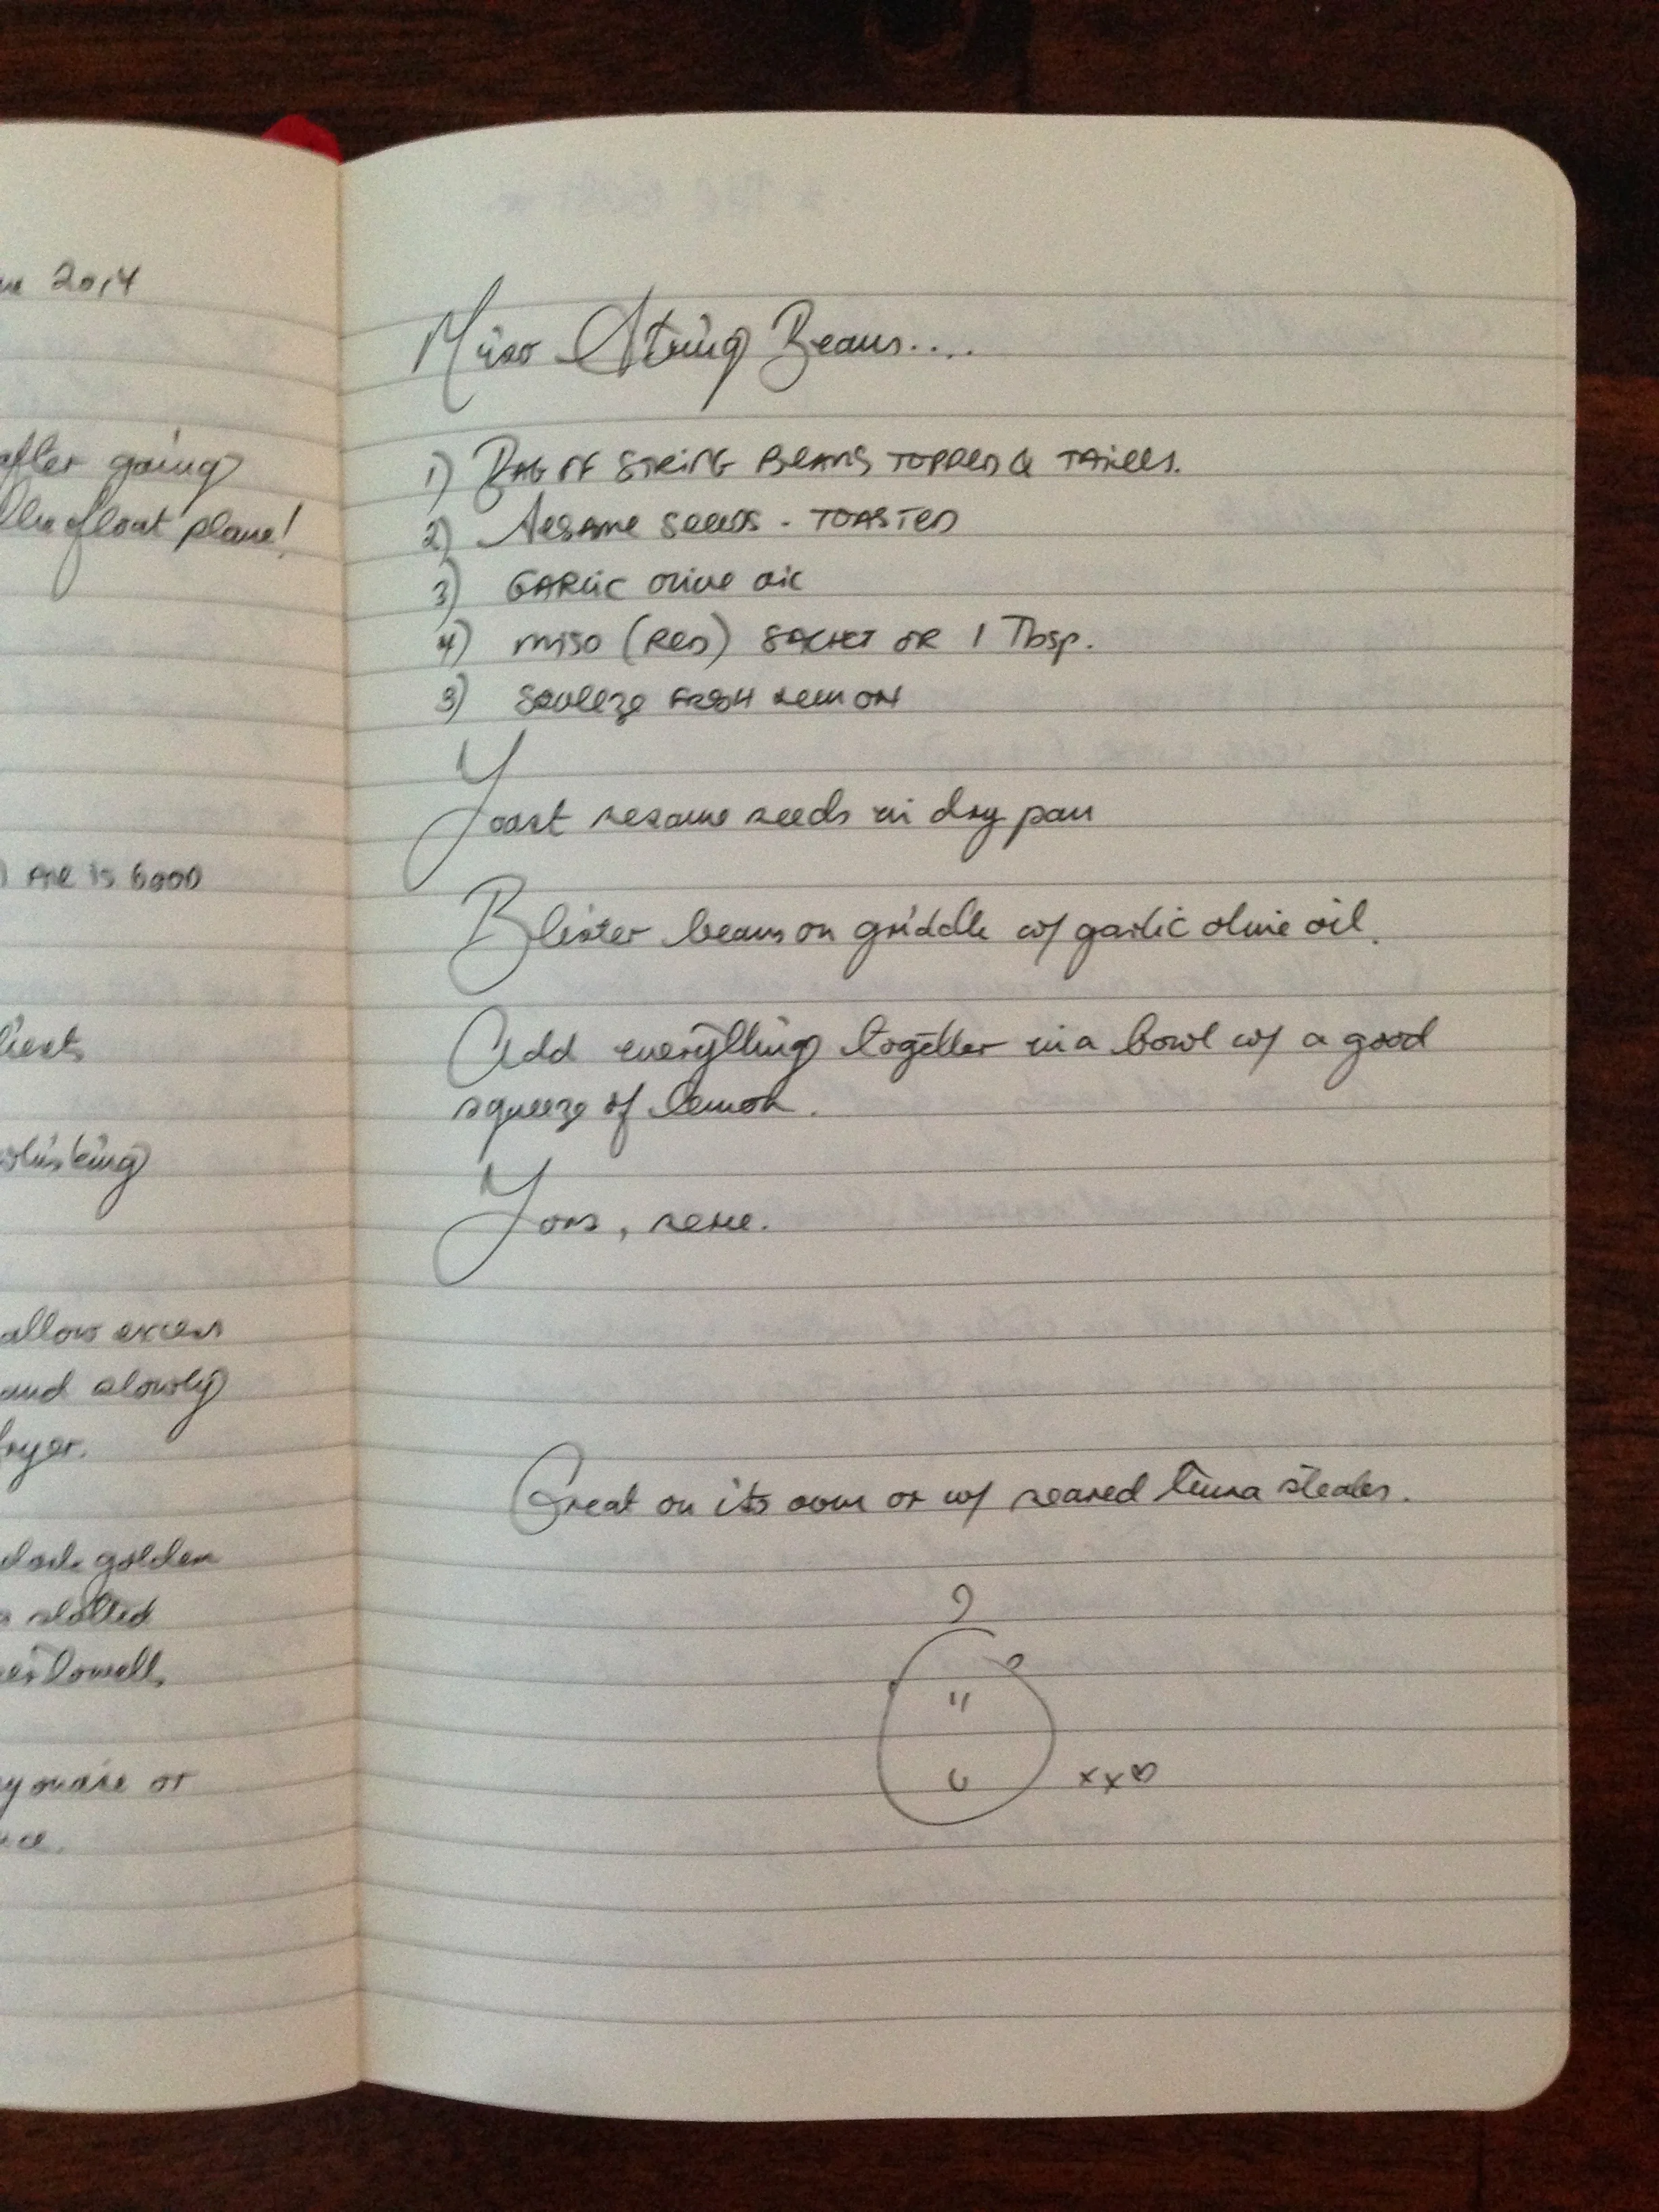 2014
after going
the float plane!
are is good
whisking
allow excess
and slowly
fryer.
dark golden
slotted
or
Miso String Beans....
1) Bag of String Beans topped & tailed.
2) Sesame seeds - TOASTED
3) GARLIC olive oil
4) miso (Red) SACHET OR 1 Tbsp.
5) Squeeze FRESH Lemon
Toast sesame seeds in dry pan
Blister beans on griddle w/ garlic olive oil.
Add everything together in a bowl w/ a good
squeeze of lemon.
Toss, serve.
Great on its own or w/ seared tuna steaks.
xx♡